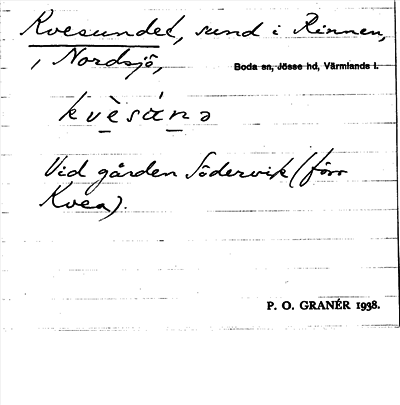 Kvesundet, sund i Rinnen,
i Nordsjö, Boda sn, Jösse hd, Värmlands l.
kvèsúnə
Vid gården Södervik (förr
Kvea).
P. O. GRANÉR 1938.